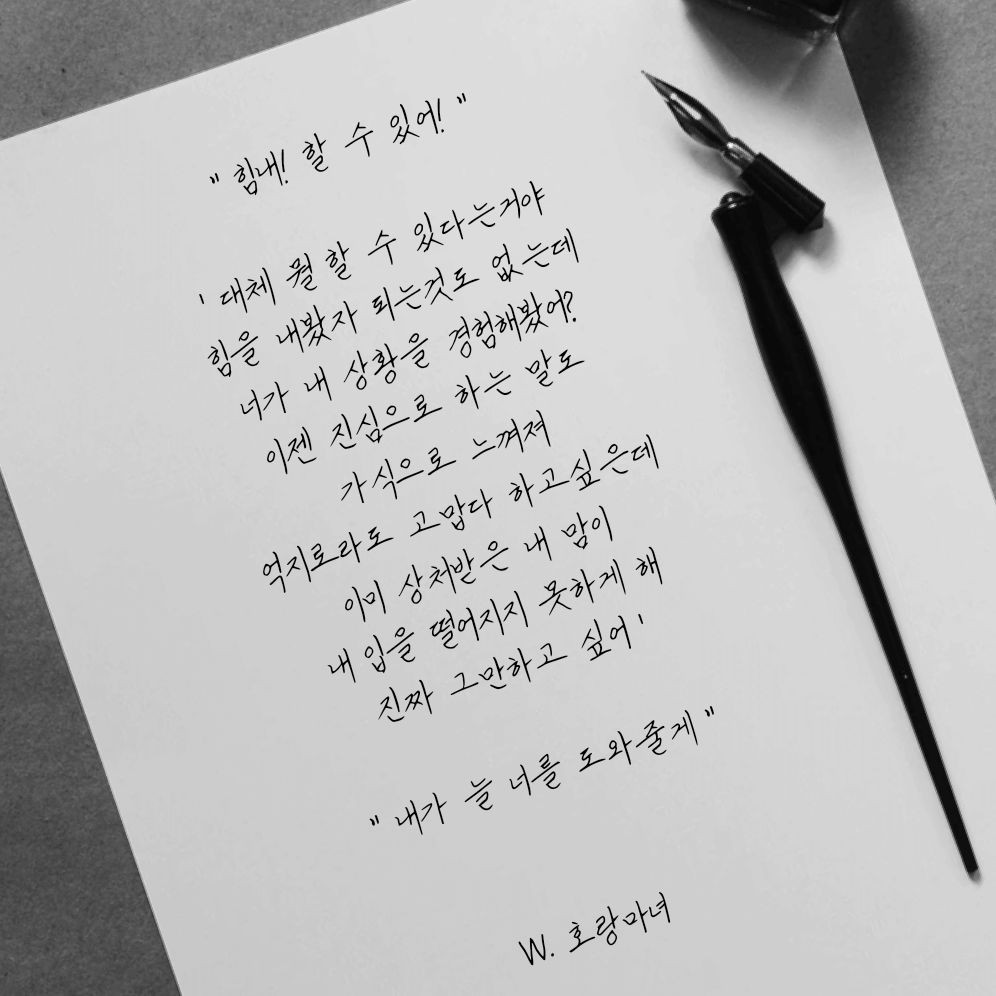 "힘내! 할 수 있어!"
'대체 뭘 할 수 있다는거야
힘을 내봤자 되는것도 없는데
너가 내 상황을 경험해봤어?
이젠 진심으로 하는 말도
가식으로 느껴져
억지로라도 고맙다 하고싶은데
이미 상처받은 내 맘이
내 입을 떨어지지 못하게 해
진짜 그만하고 싶어'
"내가 늘 너를 도와줄게"
W. 호랑마녀